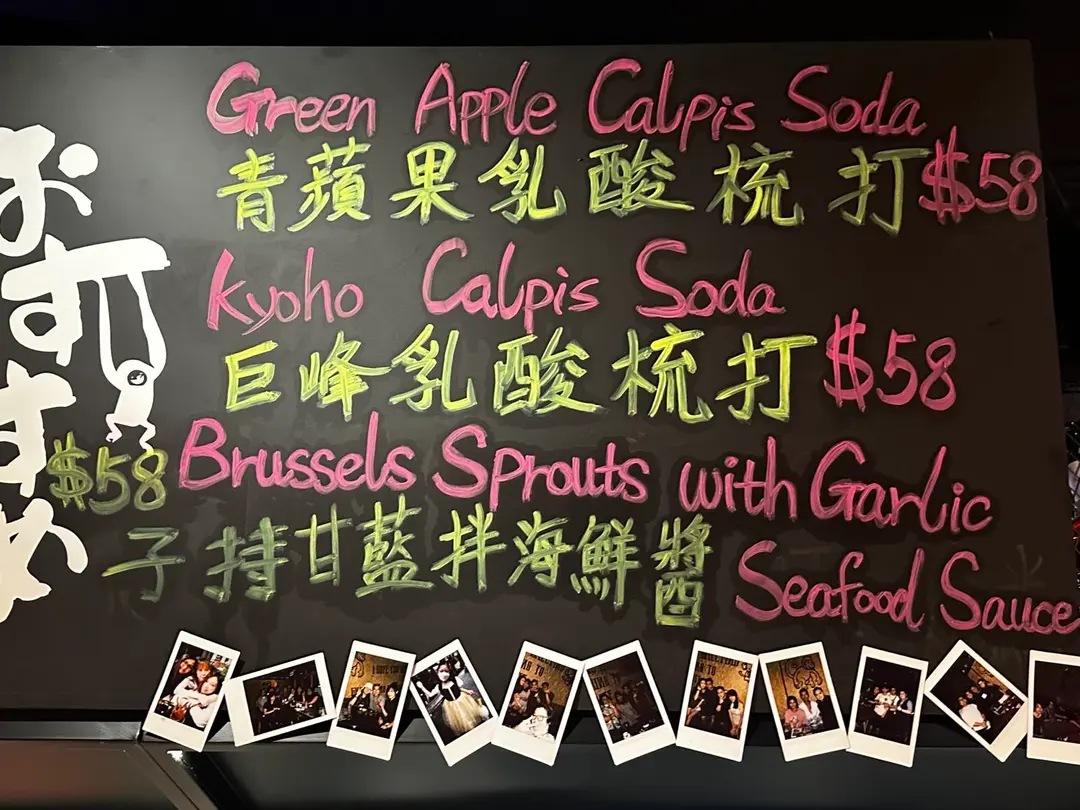 おすすめ
Green Apple Calpis Soda
青蘋果乳酸梳打$58
Kyoho Calpis Soda
巨峰乳酸梳打$58
$58 Brussels Sprouts with Garlic
子持甘藍拌海鮮醬 Seafood Sauce